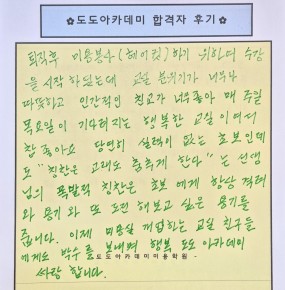 ✿도도아카데미 합격자 후기✿
퇴직후 미용봉사(헤어컷)하기 위하여 수강
을 시작 하였는데 교실 분위기가 너무나
따뜻하고 인간적인 친교가 너무좋아 매 주일
목요일이 기다려지는 행복한 교실 이면서
참 좋아요 당연히 실력이 없는 초보인데
도 "칭찬은 고래도 춤추게 한다"는 선생
님의 폭발적 칭찬은 초보 에게 항상 격려
와 용기와 또 도전 해보고 싶은 용기를
줍니다. 이제 미용실 개업하는 교실 친구들
에게도 박수를 보내며 행복 도도 아카데미
- 도도아카데미미용학원 -
사랑 합니다.